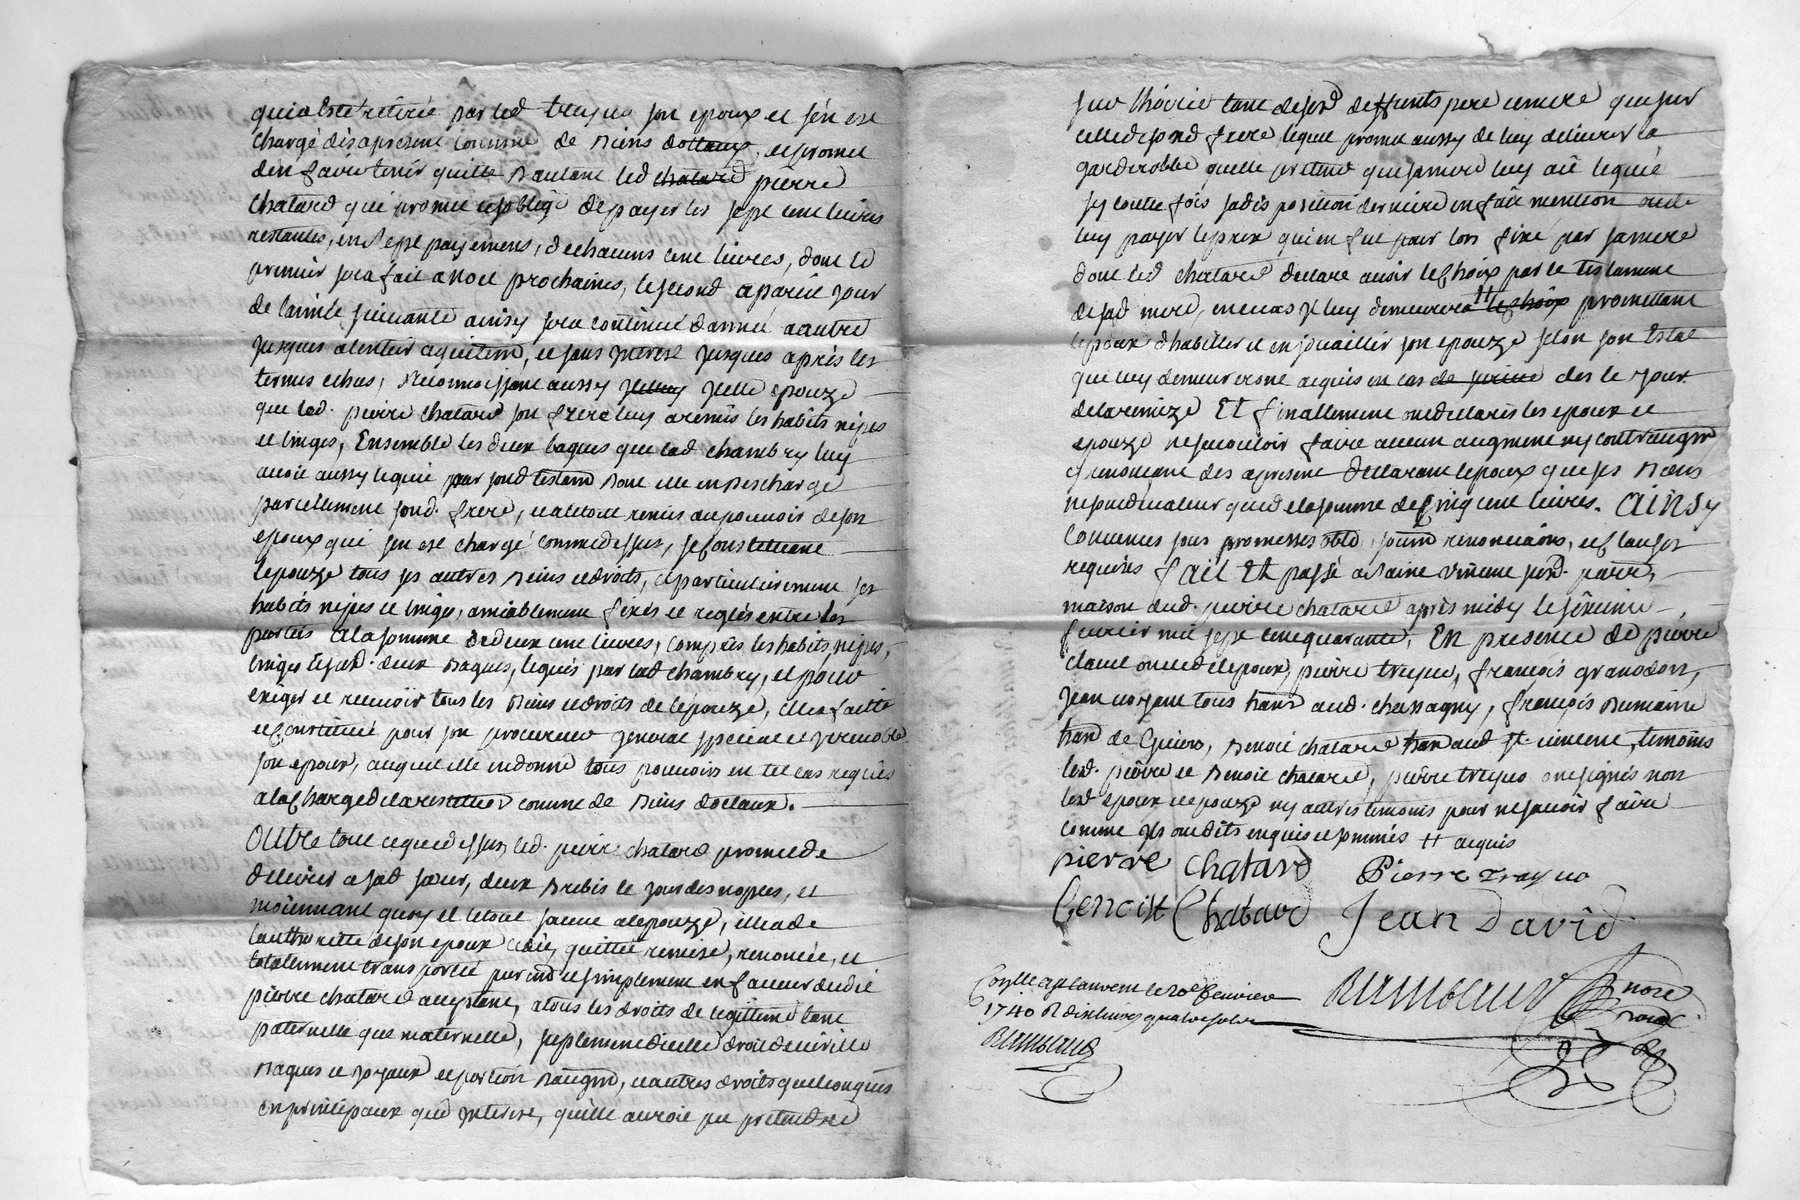 qui a esté retirée par led treyno son epoux et s'en est
chargé dès apresent comme de biens dotteaux, et promet
d'en faire tenir quitte d'autant led chatard pierre
chatard qui promet et s'oblige de payer les sept cent livres
restantes, en sept payemens, de chacuns cent livres, dont le
premier sera fait a noel prochaines, le second a pareil jour
de l'année suivante ainsy sera continué d'année a autre
jusques a l'entier aquittem, et sans interest jusques après les
termes echus, reconnoissant aussy ycelle epouze
que led. pierre chatard son frere luy a remis les habits nipes
et linges, Ensemble les deux bagues que lad chambry luy
avoit aussy legué par sond testam dont elle en descharge
pareillement sond. frere, et a le tout remis au pouvoir de son
epoux qui s'en est chargé comme dessus, se constituant
l'epouze tous ses autres biens et droits, et particulierement ses
habits nipes et linges, amiablement fixés et reglés entre les
parties a la somme de deux cent livres, compris les habits nipes,
linges et sesd. deux bagues, legués par lad chambry, et pour
exiger et recevoir tous les biens et droits de l'epouze, elle a faitte
et constitué pour son procureur general special et yrrevocable
son epoux, auquel elle en donne tous pouvoirs en tel cas requis
a la charge de la restituer comme de biens doctaux.
Outre tout ce que dessus, led. pierre chatard promet de
delivrer a sad soeur, deux brebis le jour des nopces, et
moiennant quoy et le tout sauve a l'epouze, elle a de
l'authorité de son epoux cédé, quitté remise, renoncée, et
totallement transportée purem et simplement en faveur dudit
pierre chatard acceptant, a tous les droits de legittime tant
paternelle que maternelle, suplement d'icelle droit de
bagues et joyaux et portion d'augm, et autres droits quelconques
en principaux que interest, quelle auroit pu pretendre
sur l'hoirie tant de sesd deffunts pere et mere que sur
celle de sond frere lequel promet aussy de luy delivrer la
garderobbe quelle pretend que sa mere luy ait legué
sy toutte fois sa disposition derniere en fait mention ou de
luy payer le prix qui en fut pour lors fixé par sa mere
dont led chatard declare avoir le choix par le testament
de sad mere, en ce cas il luy demeurera # le choix promettant
l'epoux d'habiller et enjouaillier son epouze selon son estat
qui luy demeureront acquis en cas de dès le jour
de la remize Et finallement ont declarés les epoux et
epouze ne se vouloir faire aucun augment ny contraugm
y renonceant dès apresent declarant l'epoux que ses biens
ne sont de valeur que de la somme de Cinq cent livres. Ainsy
Convenus sous promesses obld. soum renonciaons, et clauses
requises fait et passé a saint vincent sond. parr,
maison dud. pierre chatard après midy le seizieme
fevrier mil sept cent quarante, En presence de pierre
claude oncle de l'epoux, pierre treyno, françois grandon,
jean noyant tous hans aud. chassagny, françois dumaine
han de Givors, benoit chatard han aud st. vincent, temoins
lesd. pierre et benoit chatard, pierre treyno ont signés non
lesd epoux et epouze ny autres temoins pour ne scavoir faire
comme ils ont dits enquis et sommés # acquis
pierre chatard Pierre Trayno
Benoist Chatard Jean David
Conttle a st laurent le 20e fevrier
1740 R dix livres quatre sols
Rambaud
Rambaud nore
royal